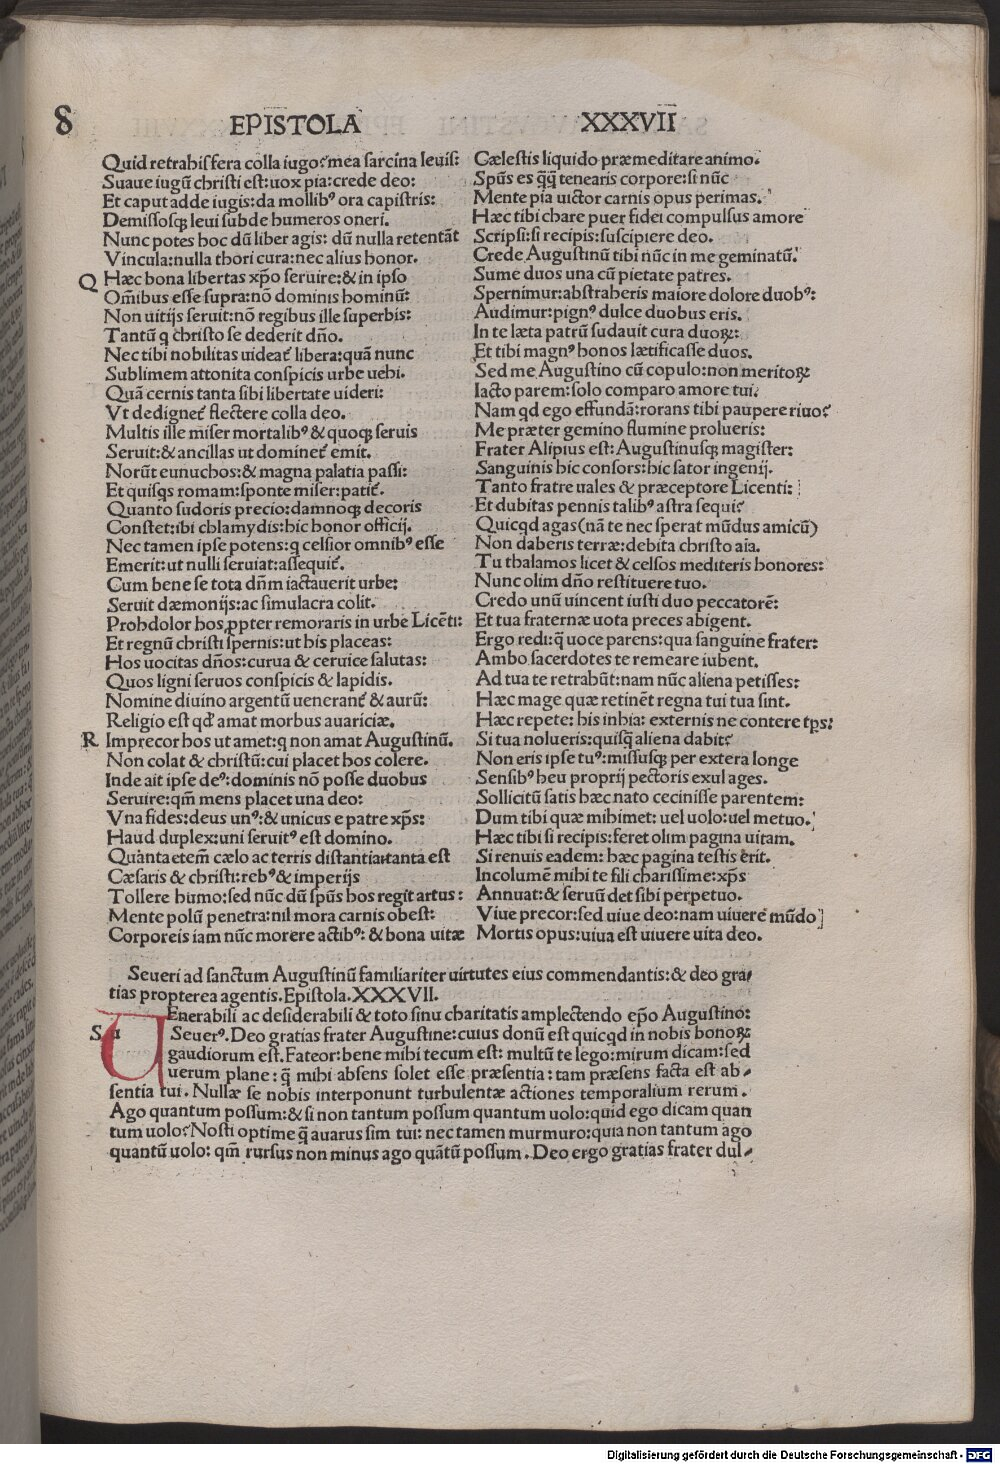 8 EPISTOLA XXXVII
Quid retrahis fera colla iugo? mea sarcina leuis:
Suaue iugū christi est: uox pia: crede deo:
Et caput adde iugis: da mollibꝰ ora capistris:
Demissosqꝫ leui subde humeros oneri.
Nunc potes hoc dū liber agis: dū nulla retentāt
Vincula: nulla thori cura: nec alius honor.
Q Hæc bona libertas xp̄o seruire: & in ipso
Om̄ibus esse supra: nō dominis hominū:
Non uitijs seruit: nō regibus ille superbis:
Tantū q christo se dederit dn̄o.
Nec tibi nobilitas uideat᷑ libera: quā nunc
Sublimem attonita conspicis urbe uehi.
Quā cernis tanta sibi libertate uideri:
Vt dedignet᷑ flectere colla deo.
Multis ille miser mortalibꝰ & quoqꝫ seruis
Seruit: & ancillas ut dominet᷑ emit.
Norūt eunuchos: & magna palatia passi:
Et quisqs romam: sponte miser: patit᷑.
Quanto sudoris precio: damnoqꝫ decoris
Constet: ibi chlamydis: hic honor officij.
Nec tamen ipse potens: q celsior omnibꝰ esse
Emerit: ut nulli seruiat: assequit᷑.
Cum bene se tota dn̄m iactauerit urbe:
Seruit dæmonijs: ac simulacra colit.
Prohdolor hos ꝓpter remoraris in urbe Licēti:
Et regnū christi spernis: ut his placeas:
Hos uocitas dn̄os: curua & ceruice salutas:
Quos ligni seruos conspicis & lapidis.
Nomine diuino argentū uenerant᷑ & aurū:
Religio est qđ amat morbus auariciæ.
R Imprecor hos ut amet: q non amat Augustinū.
Non colat & christū: cui placet hos colere.
Inde ait ipse deꝰ: dominis nō posse duobus
Seruire: qm̄ mens placet una deo:
Vna fides: deus unꝰ: & unicus e patre xp̄s:
Haud duplex: uni seruitꝰ est domino.
Quanta etem̄ cælo ac terris distantia: tanta est
Cæsaris & christi: rebꝰ & imperijs
Tollere humo: sed nūc dū sp̄us hos regit artus:
Mente polū penetra: nil mora carnis obest:
Corporeis iam nūc morere actibꝰ: & bona uitæ
Cælestis liquido præmeditare animo.
Sp̄us es q̄q̄ tenearis corpore: si nūc
Mente pia uictor carnis opus perimas.
Hæc tibi chare puer fidei compulsus amore
Scripsi: si recipis: suscipiere deo.
Crede Augustinū tibi nūc in me geminatū:
Sume duos una cū pietate patres.
Spernimur: abstraheris maiore dolore duobꝰ:
Audimur: pignꝰ dulce duobus eris.
In te læta patrū sudauit cura duoꝝ:
Et tibi magnꝰ honos lætificasse duos.
Sed me Augustino cū copulo: non meritoꝝ
Iacto parem: solo comparo amore tui.
Nam qd ego effundā: rorans tibi paupere riuo?
Me præter gemino flumine prolueris:
Frater Alipius est: Augustinusqꝫ magister:
Sanguinis hic consors: hic sator ingenij.
Tanto fratre uales & præceptore Licenti:
Et dubitas pennis talibꝰ astra sequi?
Quicqd agas (nā te nec sperat mūdus amicū)
Non daberis terræ: debita christo aīa.
Tu thalamos licet & celsos mediteris honores:
Nunc olim dn̄o restituere tuo.
Credo unū uincent iusti duo peccatorē:
Et tua fraternæ uota preces abigent.
Ergo redi: q̄ uoce parens: qua sanguine frater:
Ambo sacerdotes te remeare iubent.
Ad tua te retrahūt: nam nūc aliena petisses:
Hæc mage quæ retinēt regna tui tua sint.
Hæc repete: his inhia: externis ne contere tp̄s:
Si tua nolueris: quisq̄ aliena dabit?
Non eris ipse tuꝰ: missusqꝫ per extera longe
Sensibꝰ heu proprij pectoris exul ages.
Sollicitū satis hæc nato cecinisse parentem:
Dum tibi quæ mihimet: uel uolo: uel metuo.
Hæc tibi si recipis: feret olim pagina uitam.
Si renuis eadem: hæc pagina testis erit.
Incolumē mihi te fili charissime: xp̄s
Annuat: & seruū det sibi perpetuo.
Viue precor: sed uiue deo: nam uiuere mūdo
Mortis opus: uiua est uiuere uita deo.
Seueri ad sanctum Augustinū familiariter uirtutes eius commendantis: & deo gra-
tias propterea agentis. Epistola. XXXVII.
UEnerabili ac desiderabili & toto sinu charitatis amplectendo ep̄o Augustino:
Seuerꝰ. Deo gratias frater Augustine: cuius donū est quicqd in nobis bonoꝝ
gaudiorum est. Fateor: bene mihi tecum est: multū te lego: mirum dicam: sed
uerum plane: q̄ mihi absens solet esse præsentia: tam præsens facta est ab-
sentia tui. Nullæ se nobis interponunt turbulentæ actiones temporalium rerum.
Ago quantum possum: & si non tantum possum quantum uolo: quid ego dicam quan
tum uolo? Nosti optime q̄ auarus sim tui: nec tamen murmuro: quia non tantum ago
quantū uolo: qm̄ rursus non minus ago quātū possum. Deo ergo gratias frater dul-
Digitalisierung gefördert durch die Deutsche Forschungsgemeinschaft - DFG